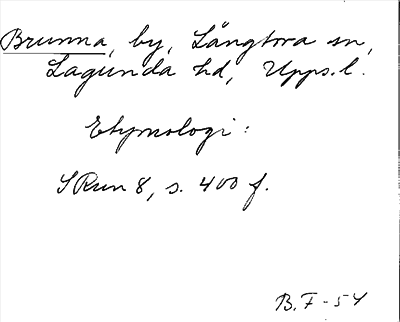 Brunna, by, Långtora sn,
Lagunda hd, Upps.l.
Etymologi:
SRun 8, s. 400 f.
B.F-54